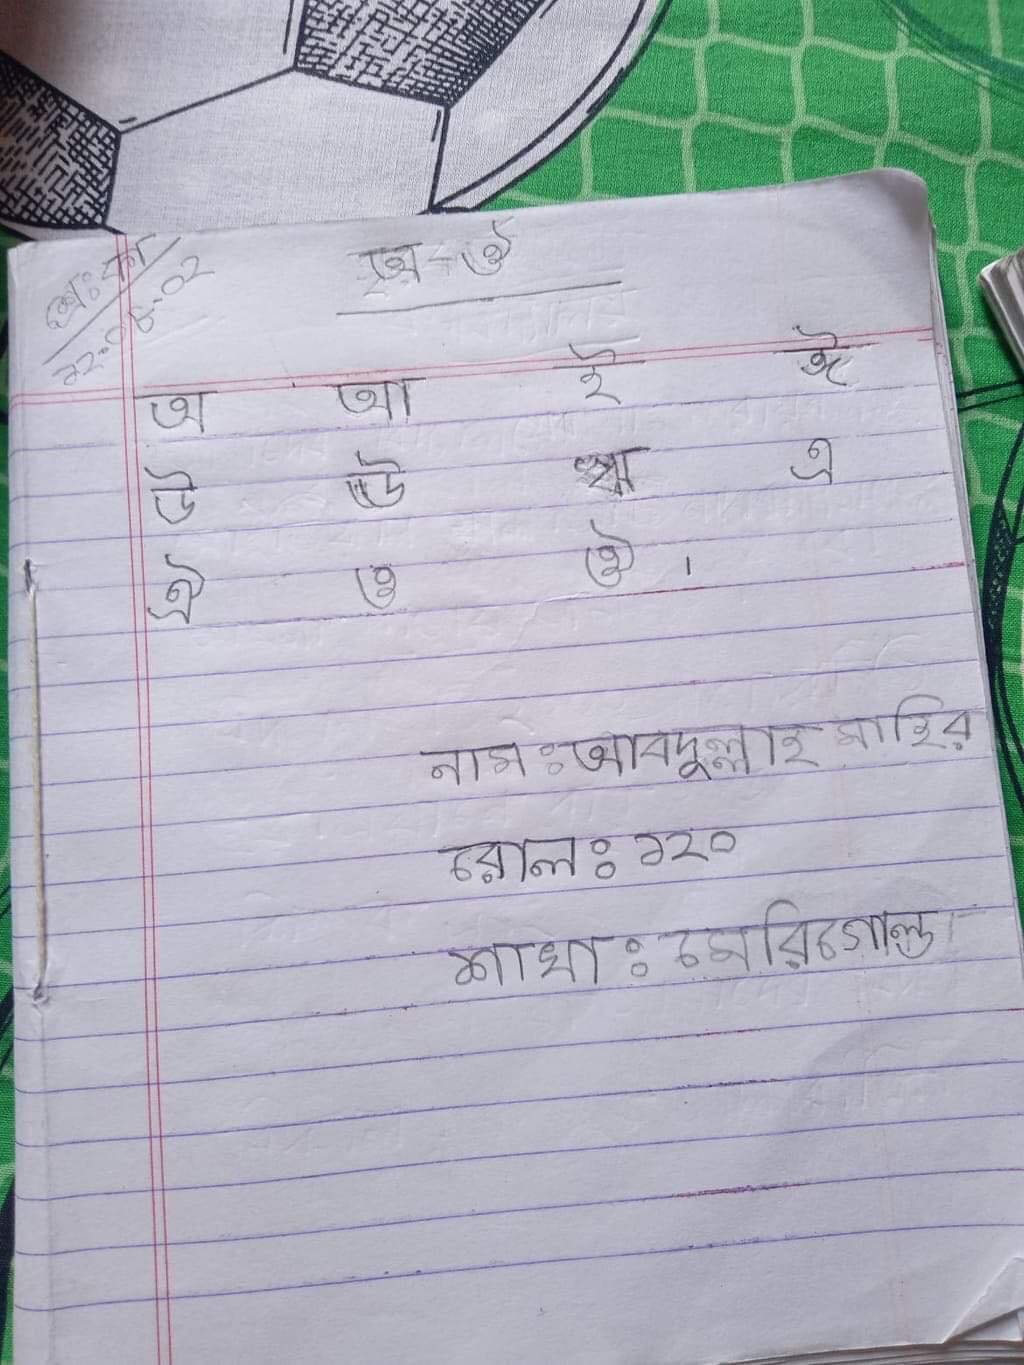 শ্রেঃ কা
১২-০৪-০২
অ-ঔ
অ আ ই ঈ
উ ঊ ঋ এ
ঐ ও ঔ ।
নাম ঃ আবদুল্লাহ মাহির
রোল ঃ ১২০
শাখা ঃ মেরিগোল্ড